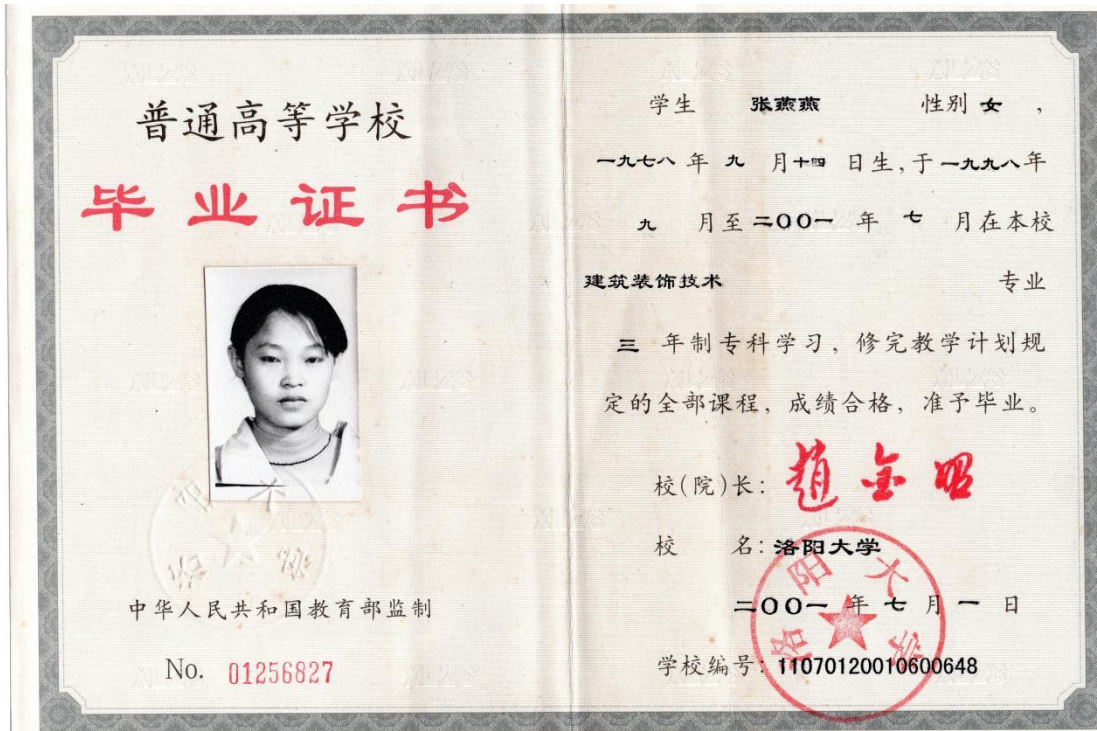 普通高等学校
毕业证书
洛阳大学
中华人民共和国教育部监制
No. 01256827
学生 张燕燕 性别 女,
一九七八 年 九 月十四 日生,于一九九八年
九 月至 二00一 年 七 月在本校
建筑装饰技术 专业
三 年制专科学习,修完教学计划规
定的全部课程,成绩合格,准予毕业。
校(院)长: 趙金昭
校 名: 洛阳大学
二00一 年 七 月 一 日
洛阳大学
学校编号: 11070120010600648